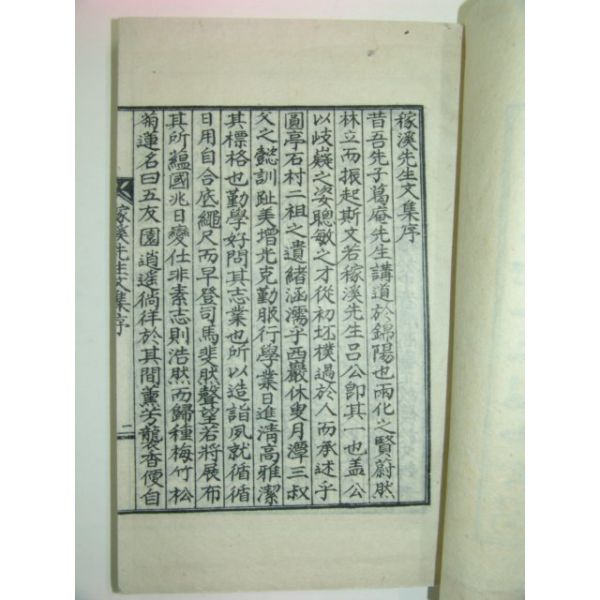 稼溪先生文集序
昔吾先子葛庵先生講道於錦陽也雨化之賢蔚然
林立而振起斯文若稼溪先生呂公卽其一也盖公
以歧嶷之姿聰敏之才從初坯樸過於人而承述乎
圓亭石村二祖之遺緖涵濡乎西巖休叟月潭三叔
父之懿訓趾美增光克勤服行學業日進淸高雅潔
其標格也勤學好問其志業也所以造詣夙就循循
日用自合底繩尺而早登司馬斐然聲望若將展布
其所蘊國兆日變仕非素志則浩然而歸種梅竹松
菊蓮名曰五友園逍遥徜徉於其間薰芳襲香便自
稼溪先生文集序
二